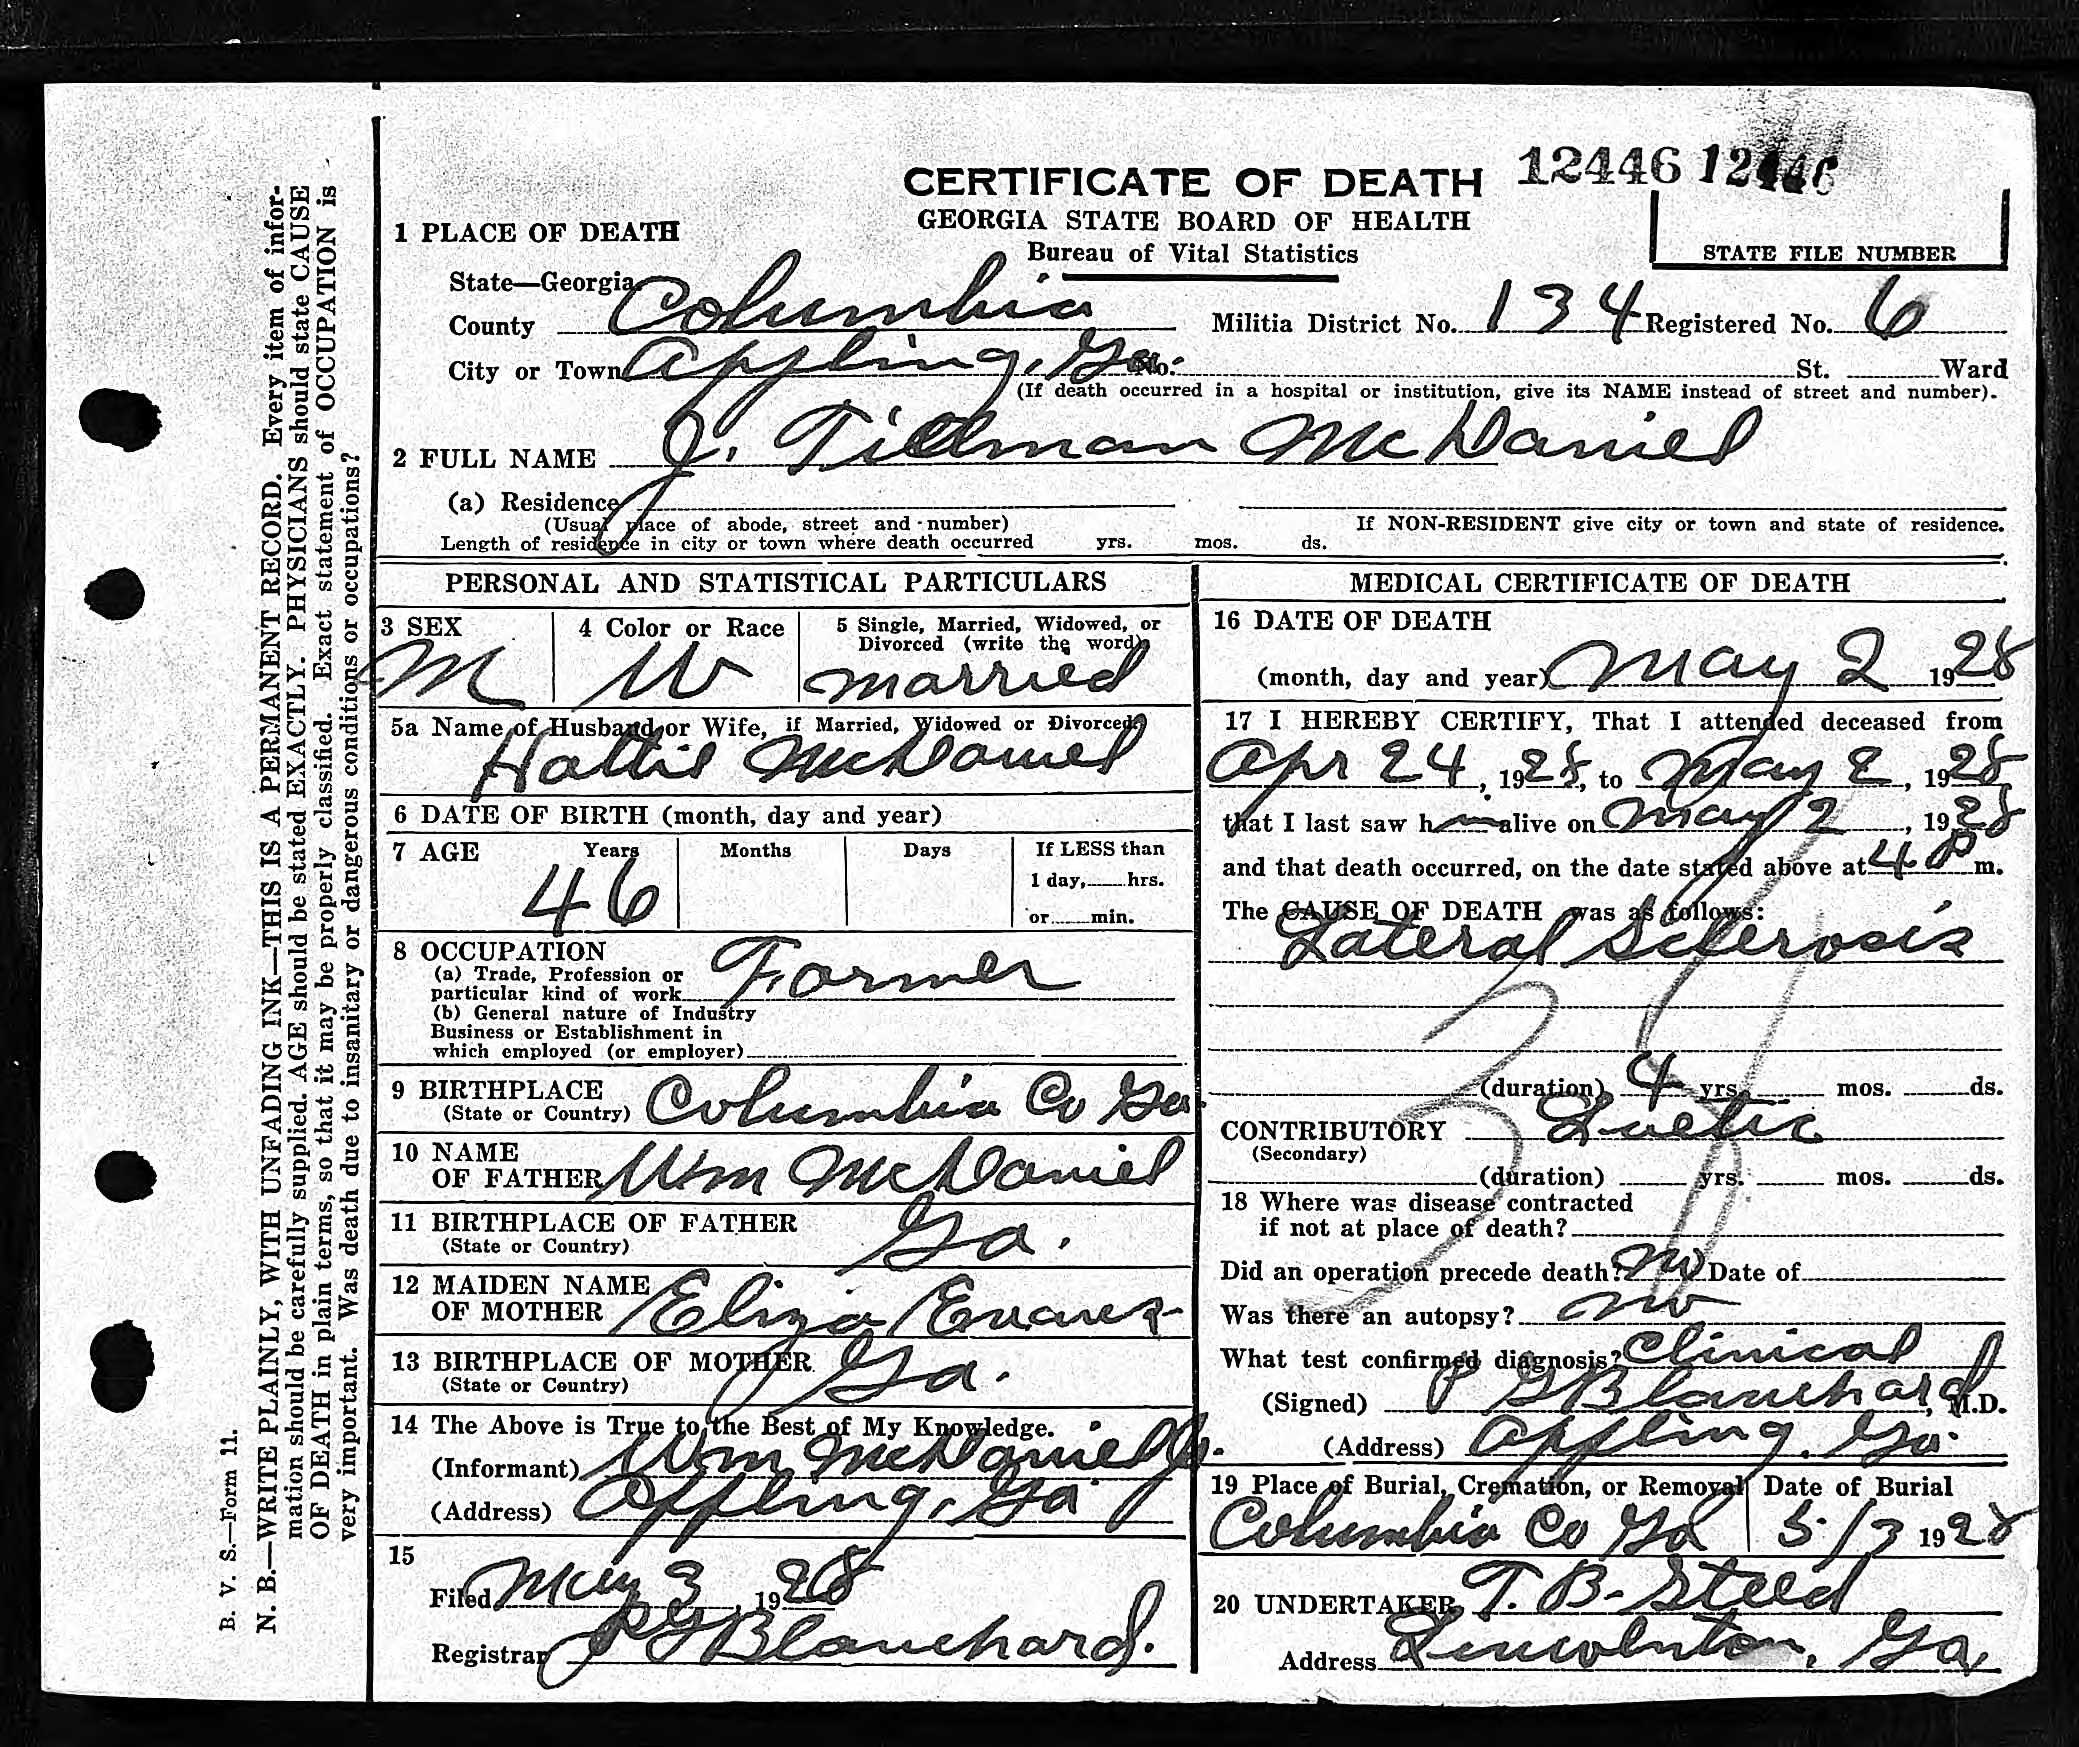 CERTIFICATE OF DEATH 12446 12446
GEORGIA STATE BOARD OF HEALTH
Bureau of Vital Statistics
STATE FILE NUMBER
1 PLACE OF DEATH
State—Georgia
County Columbia Militia District No. 134 Registered No. 6
City or Town Appling, Ga. No. St. Ward
(If death occurred in a hospital or institution, give its NAME instead of street and number).
2 FULL NAME J. Tillman McDaniel
(a) Residence
(Usual place of abode, street and number) If NON-RESIDENT give city or town and state of residence.
Length of residence in city or town where death occurred yrs. mos. ds.
PERSONAL AND STATISTICAL PARTICULARS
3 SEX 4 Color or Race 5 Single, Married, Widowed, or
Divorced (write the word)
M W married
5a Name of Husband or Wife, if Married, Widowed or Divorced
Hattie McDaniel
6 DATE OF BIRTH (month, day and year)
7 AGE Years Months Days If LESS than
1 day, hrs.
46 or min.
8 OCCUPATION
(a) Trade, Profession or
particular kind of work Farmer
(b) General nature of Industry
Business or Establishment in
which employed (or employer)
9 BIRTHPLACE
(State or Country) Columbia Co Ga.
10 NAME
OF FATHER Wm McDaniel
11 BIRTHPLACE OF FATHER
(State or Country) Ga.
12 MAIDEN NAME
OF MOTHER Eliza Euares
13 BIRTHPLACE OF MOTHER
(State or Country) Ga.
14 The Above is True to the Best of My Knowledge.
(Informant) Wm McDaniel Jr.
(Address) Appling, Ga
15
Filed May 3, 1928
Registrar P G Blanchard.
MEDICAL CERTIFICATE OF DEATH
16 DATE OF DEATH
(month, day and year) May 2 1928
17 I HEREBY CERTIFY, That I attended deceased from
Apr 24, 1928, to May 2, 1928
that I last saw him alive on May 2, 1928
and that death occurred, on the date stated above at 4 P m.
The CAUSE OF DEATH was as follows:
Lateral Sclerosis
(duration) 4 yrs. mos. ds.
CONTRIBUTORY Luetic
(Secondary)
(duration) yrs. mos. ds.
18 Where was disease contracted
if not at place of death?
Did an operation precede death? No Date of
Was there an autopsy? no
What test confirmed diagnosis? Clinical
(Signed) P G Blanchard, M.D.
(Address) Appling, Ga.
19 Place of Burial, Cremation, or Removal Date of Burial
Columbia Co Ga 5/3 1928
20 UNDERTAKER T. B. Steed
Address Lincolnton, Ga
B. V. S.—Form 11.
N. B.—WRITE PLAINLY, WITH UNFADING INK—THIS IS A PERMANENT RECORD. Every item of infor-
mation should be carefully supplied. AGE should be stated EXACTLY. PHYSICIANS should state CAUSE
OF DEATH in plain terms, so that it may be properly classified. Exact statement of OCCUPATION is
very important. Was death due to insanitary or dangerous conditions or occupations?